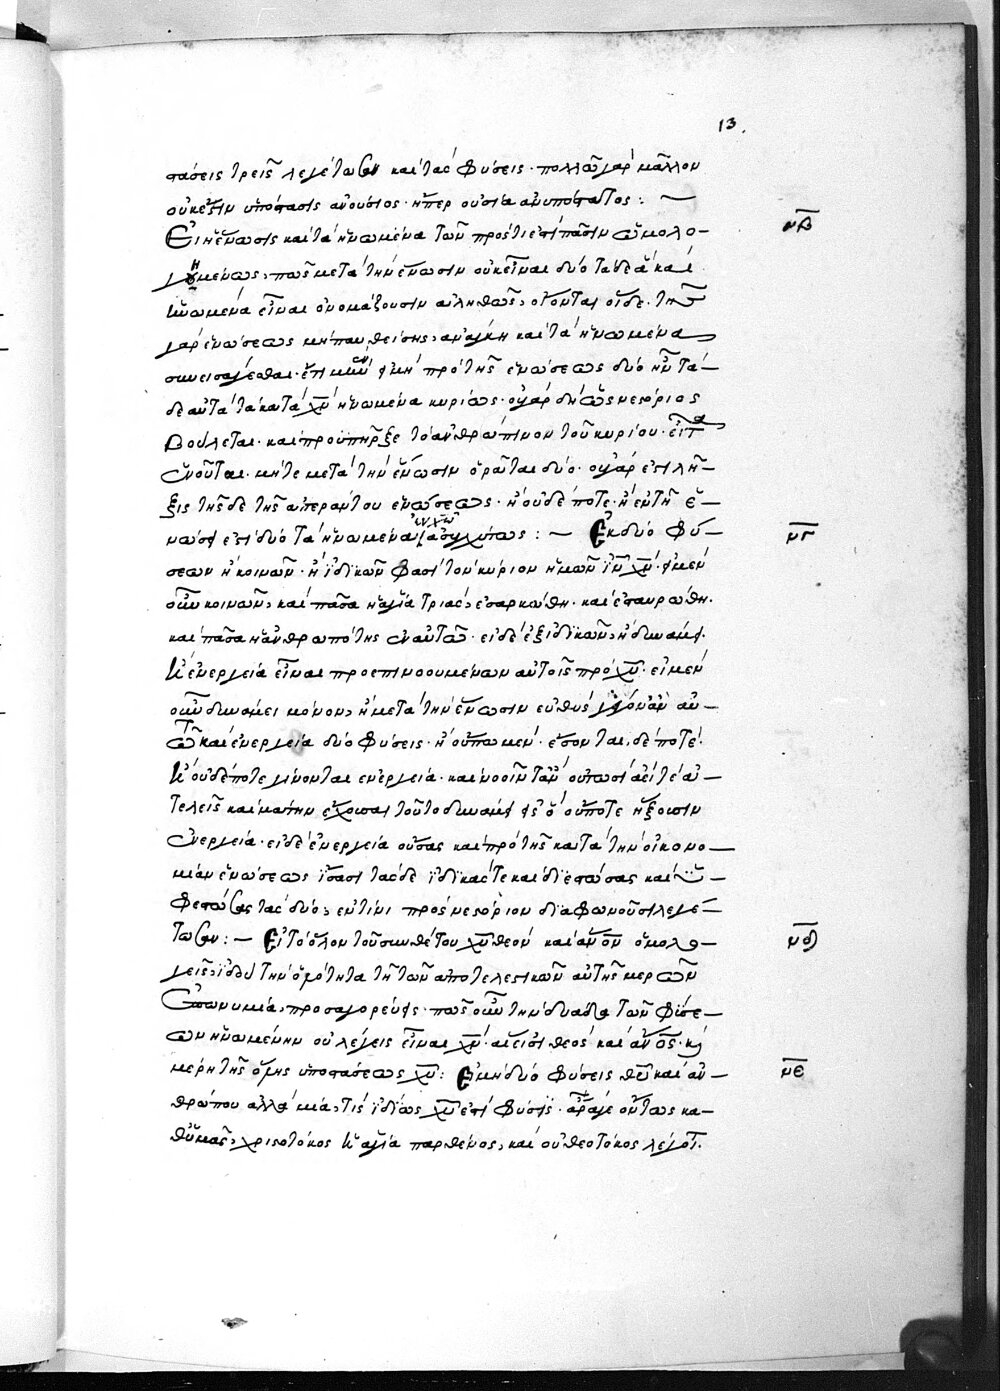 13.
στάσεις τρεῖς λεγέτωσαν καὶ τὰς φύσεις· πολλῶ γὰρ μᾶλλον
οὐκ ἔστιν ὑπόστασις ἀνούσιος· ἤπερ οὐσία ἀνυπόστατος: ~
Εἰ ἡ ἕνωσις καὶ τὰ ἡνωμένα τῶν πρός τι ἐστὶ πᾶσιν ὡμολο-
γημένως, πῶς μετὰ τὴν ἕνωσιν οὐκ εἶναι δύο τάδε ἃ καὶ
ἡνωμένα εἶναι ὀνομάζουσιν ἀληθῶς, οἴονται οἵδε· τῆς
γὰρ ἑνώσεως μὴ παυθείσης, ἀνάγκη καὶ τὰ ἡνωμένα
συνεισάγεσθαι· πρὸ τῆς ἑνώσεως δύο ἦν τά-
δε αὐτὰ τὰ κατὰ χν ἡνωμένα κυρίως· οὐ γὰρ δὴ ὡς νεστόριος
βούλεται· καὶ προϋπῆρξε τὸ ἀνθρώπινον τοῦ κυρίου·
ἑνοῦται· μήτε μετὰ τὴν ἕνωσιν ὁρᾶται δύο· οὐ γὰρ ἐστι λῆ-
ξις τῆσδε τῆς ἀπεράντου ἑνώσεως· ἢ οὐδέποτε· ἢ ἐν τῇ ἑ-
νώσει ἐστὶ δύο τὰ ἡνωμένα ἀσυγχύτως: ~ Ἐκ δύο φύ-
σεων ἢ κοινῶν· ἢ ἰδικῶν φασὶ τὸν κύριον ἡμῶν ιν χν· εἰ μὲν
οὖν κοινῶν, καὶ πᾶσα ἡ ἁγία τριὰς, ἐσαρκώθη· καὶ ἐσταυρώθη·
καὶ πᾶσα ἡ ἀνθρωπότης σὺν αὐτῶ· εἰ δὲ ἐξ ἰδικῶν, ἢ δυνάμει
ἢ ἐνεργεία εἶναι προεπινοουμένων αὐτοῖς πρὸ χυ· εἰ μὲν
οὖν δυνάμει μόνον, ἢ μετὰ τὴν ἕνωσιν εὐθὺς γεγόνασιν αὐ-
τῶ καὶ ἐνεργεία δύο φύσεις· ἢ οὔπω μέν· ἔσονται δέ ποτε·
ἢ οὐδέποτε γίνονται ἐνεργεία· καὶ νοοῖντ' ἂν οὕτως ἀεί τε ἀ-
τελεῖς καὶ μάτην ἔχουσαι τοῦτο δυνάμει εἰς ὃ οὔποτε ἥξουσιν
ἐνεργεία· εἰ δὲ ἐνεργεία οὔσας καὶ πρὸ τῆς κατὰ τὴν οἰκονο-
μίαν ἑνώσεως ἴσασι τάσδε ἰδικάς τε καὶ διεστώσας καὶ ὑ-
φεστώσας τὰς δύο, ἔν τινι πρὸς νεστόριον διαφωνοῦσι λεγέ-
τωσαν: ~ Εἰ τὸ ὅλον τοῦ συνθέτου χυ θεὸν καὶ ἀνον ὁμολο-
γεῖς, ἰδοὺ τὴν ὁλότητα τῇ τῶν ἀποτελεστικῶν αὐτῆς μερῶν
ἐπωνυμία, προσαγορεύεις· πῶς οὖν τὴν δυάδα τῶν φύσε-
ων ἡνωμένην οὐ λέγεις εἶναι χν· αἵ εἰσι θεὸς καὶ ἄνος· καὶ
μέρη τῆς ὅλης ὑποστάσεως χυ: Εἰ μὴ δύο φύσεις θυ καὶ ἀν-
θρώπου ἀλλὰ μία τις ἰδίως χυ ἐστὶ φύσις· ἆρά γε ὄντως κα-
θ' ὑμᾶς, χριστοτόκος ἡ ἁγία παρθένος, καὶ οὐ θεοτόκος λέγοιτ.
νβ
νγ
νδ
νε